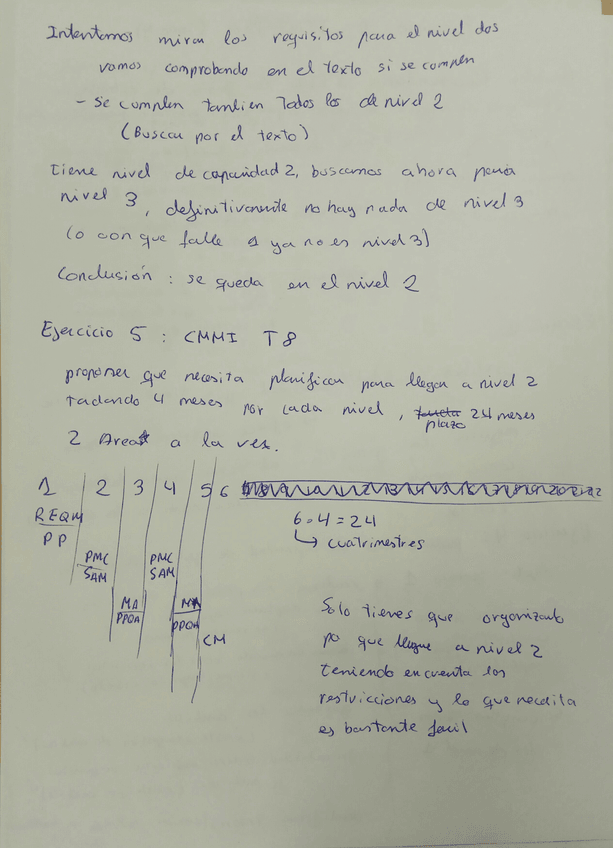 Intentamos mirar los requisitos para el nivel dos
vamos comprobando en el texto si se cumplen
- Se cumplen tambien todos los de nivel 2
(Buscar por el texto)
tiene nivel de capacidad 2, buscamos ahora para
nivel 3, definitivamente no hay nada de nivel 3
(o con que falle 1 ya no es nivel 3)
Conclusión: se queda en el nivel 2
Ejercicio 5: CMMI T8
proponer que necesita planificar para llegar a nivel 2
tardando 4 meses por cada nivel, plazo 24 meses
2 Areas a la vez.
1 2 3 4 5 6
REQM
PP
PMC
SAM
MA
PPQA
PMC
SAM
MA
PPQA
CM
6·4=24
↳ cuatrimestres
Solo tienes que organizarlo
pa que llegue a nivel 2
teniendo en cuenta las
restricciones y lo que necesita
es bastante facil